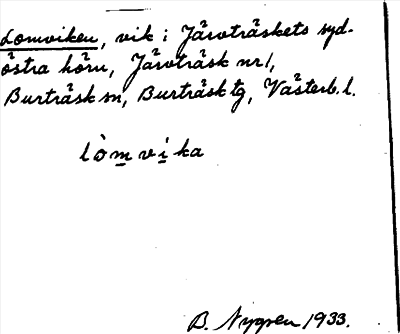 Lomviken, vik i Järvträskets syd-
östra hörn, Järvträsk nr 1,
Burträsk sn, Burträsk tg, Västerb. l.
lòmvika
B. Nygren 1933.